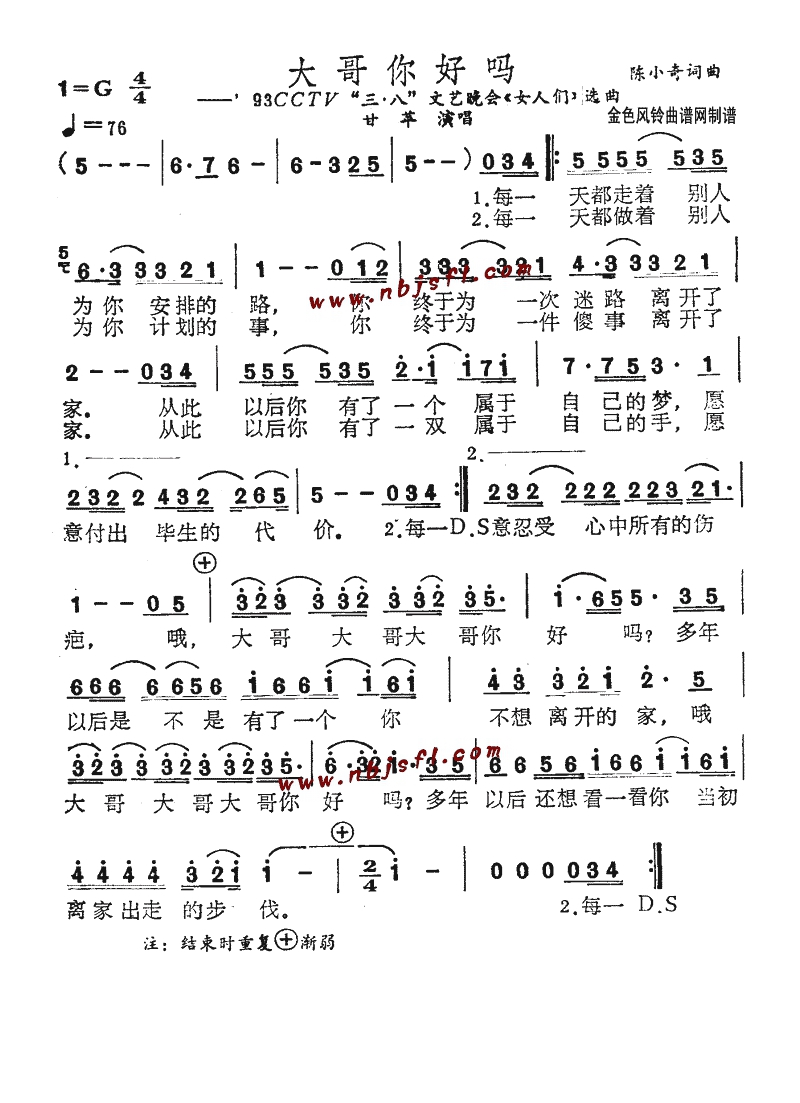 大哥你好吗
1=G 4/4
陈小奇词曲
——’93CCTV“三·八”文艺晚会《女人们》选曲
♩=76
甘苹 演唱
金色风铃曲谱网制谱
(5 - - - | 6·7 6 - - | 6 - 3 2 5 | 5 - - - ) 0 3 4 ‖: 5 5 5 5 5 3 5
1.每一 天都走着 别人
2.每一 天都做着 别人
6·3 3 3 2 1 | 1 - - 0 1 2 | 3 3 3 3 2 1 4·3 3 3 2 1 |
www.nbjsfl.com
为你 安排的 路, 你 终于为 一次 迷路 离开了
为你 计划的 事, 你 终于为 一件 傻事 离开了
2 - - 0 3 4 | 5 5 5 5 3 5 2·1 1 7 1 | 7·7 5 3·1 |
家. 从此 以后你 有了 一个 属于 自己的梦, 愿
家. 从此 以后你 有了 一双 属于 自己的手, 愿
1. 2.
2 3 2 2 4 3 2 2 2 6 5 | 5 - - 0 3 4 :‖ 2 3 2 2 2 2 2 2 3 2 1·
意付出 毕生的 代 价. 2.每一D.S意忍受 心中所有的伤
1 - - 0 5 | 3 2 3 3 2 3 3 2 3 2 3 5· | 1·6 5 5·3 5 |
疤, 哦, 大哥 大哥大 哥你 好 吗? 多年
6 6 6 6 6 5 6 1 6 6 1 1 6 1 | 4 3 3 2 1 2·5 |
以后是 不是 有了一个 你 不想 离开的 家, 哦
3 2 3 3 2 3 3 2 3 2 3 5· | 6·3 2 1·3 5 | 6 6 5 6 1 6 6 1 1 6 1 |
www.nbjsfl.com
大哥 大哥大 哥你 好 吗? 多年 以后 还想 看一看你 当初
4 4 4 4 3 2 1 1 - | 2/4 1 - | 0 0 0 0 3 4 :‖
离家出走 的步 伐. 2.每一 D.S
注: 结束时重复⊕渐弱